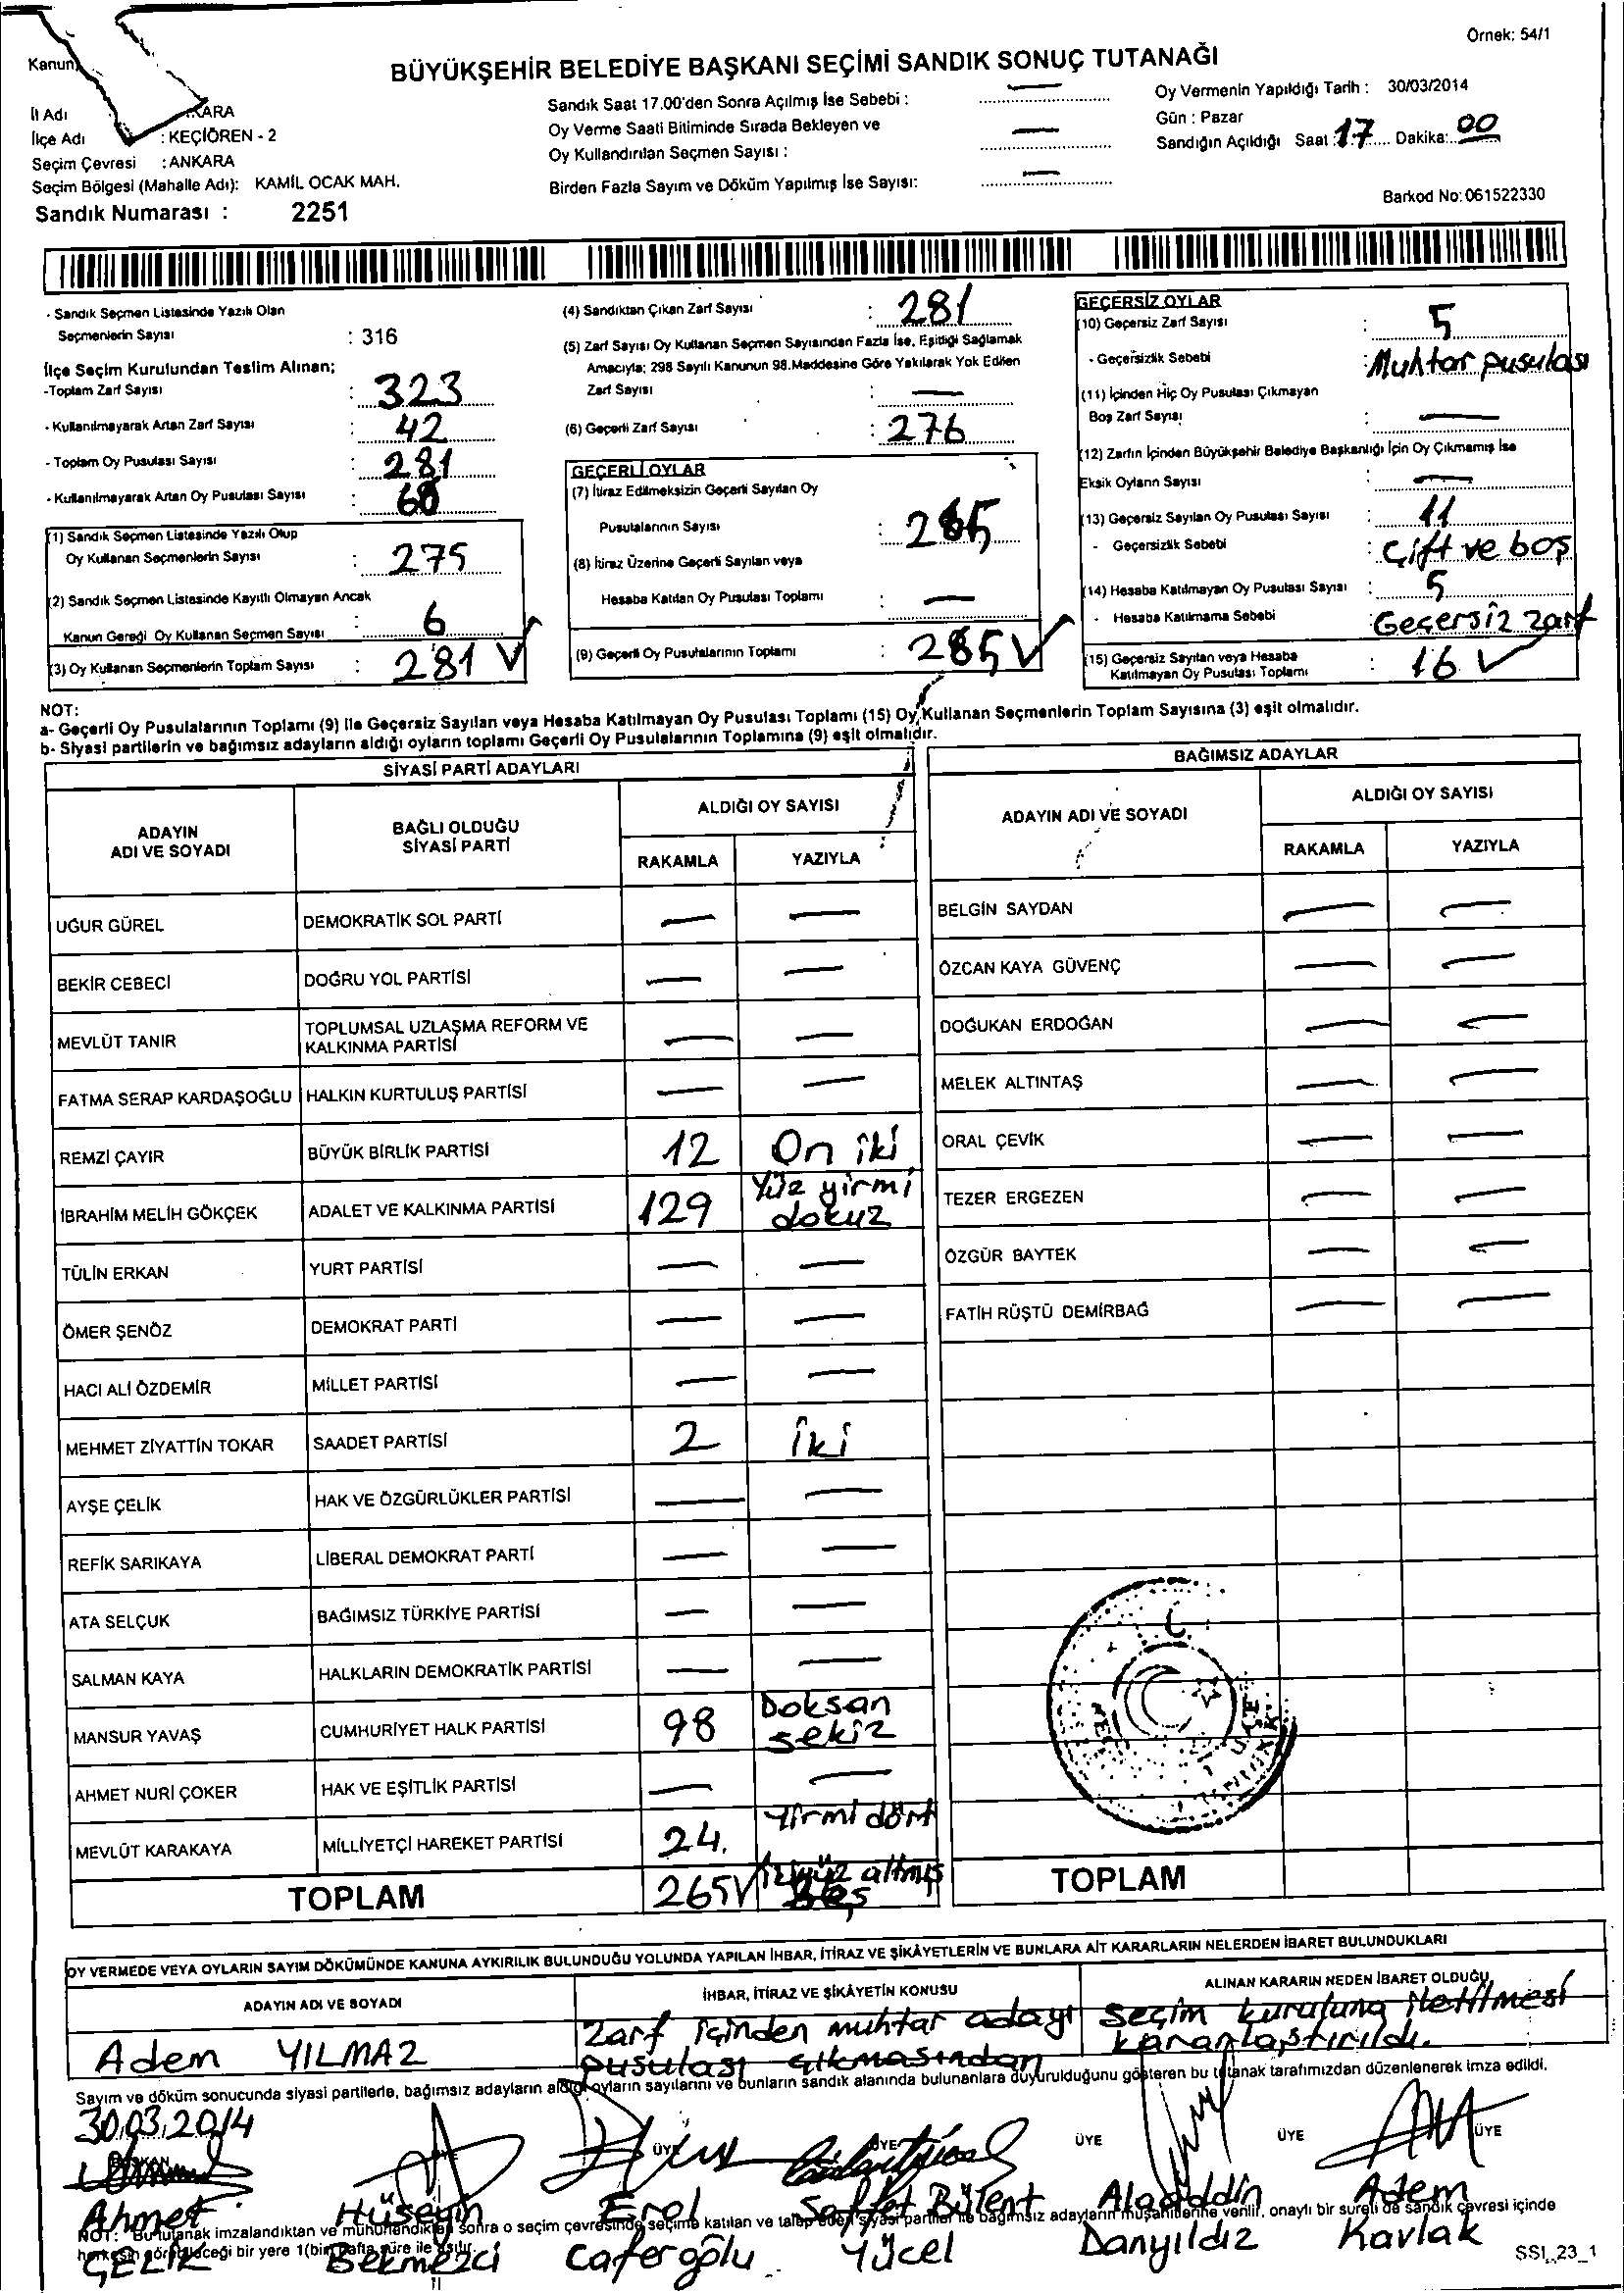 Örnek: 54/1
Kanun
BÜYÜKŞEHİR BELEDİYE BAŞKANI SEÇİMİ SANDIK SONUÇ TUTANAĞI
İl Adı KARA
İlçe Adı : KEÇİÖREN - 2
Seçim Çevresi : ANKARA
Seçim Bölgesi (Mahalle Adı): KAMİL OCAK MAH.
Sandık Numarası : 2251
Sandık Saat 17.00'den Sonra Açılmış İse Sebebi : —
Oy Verme Saati Bitiminde Sırada Bekleyen ve
Oy Kullandırılan Seçmen Sayısı : —
Birden Fazla Sayım ve Döküm Yapılmış İse Sayısı: —
Oy Vermenin Yapıldığı Tarih : 30/03/2014
Gün : Pazar
Sandığın Açıldığı Saat : 17 Dakika: 00
Barkod No: 061522330
- Sandık Seçmen Listesinde Yazılı Olan
Seçmenlerin Sayısı : 316
İlçe Seçim Kurulundan Teslim Alınan;
-Toplam Zarf Sayısı : 323
- Kullanılmayarak Artan Zarf Sayısı : 42
- Toplam Oy Pusulası Sayısı : 281
- Kullanılmayarak Artan Oy Pusulası Sayısı : 60
(1) Sandık Seçmen Listesinde Yazılı Olup
Oy Kullanan Seçmenlerin Sayısı : 275
(2) Sandık Seçmen Listesinde Kayıtlı Olmayan Ancak
Kanun Gereği Oy Kullanan Seçmen Sayısı : 6
(3) Oy Kullanan Seçmenlerin Toplam Sayısı : 281 V
(4) Sandıktan Çıkan Zarf Sayısı : 281
(5) Zarf Sayısı Oy Kullanan Seçmen Sayısından Fazla İse, Eşitliği Sağlamak
Amacıyla; 298 Sayılı Kanunun 98.Maddesine Göre Yakılarak Yok Edilen
Zarf Sayısı : —
(6) Geçerli Zarf Sayısı : 276
GEÇERLİ OYLAR
(7) İtiraz Edilmeksizin Geçerli Sayılan Oy
Pusulalarının Sayısı : 265
(8) İtiraz Üzerine Geçerli Sayılan veya
Hesaba Katılan Oy Pusulası Toplamı : —
(9) Geçerli Oy Pusulalarının Toplamı : 265 V
GEÇERSİZ OYLAR
(10) Geçersiz Zarf Sayısı : 5
- Geçersizlik Sebebi : Muhtar pusulası
(11) İçinden Hiç Oy Pusulası Çıkmayan
Boş Zarf Sayısı : —
(12) Zarfın İçinden Büyükşehir Belediye Başkanlığı İçin Oy Çıkmamış İse
Eksik Oyların Sayısı : —
(13) Geçersiz Sayılan Oy Pusulası Sayısı : 11
- Geçersizlik Sebebi : Çift ve boş
(14) Hesaba Katılmayan Oy Pusulası Sayısı : 5
- Hesaba Katılmama Sebebi : Geçersiz zarf
(15) Geçersiz Sayılan veya Hesaba
Katılmayan Oy Pusulası Toplamı : 16 V
NOT:
a- Geçerli Oy Pusulalarının Toplamı (9) ile Geçersiz Sayılan veya Hesaba Katılmayan Oy Pusulası Toplamı (15) Oy Kullanan Seçmenlerin Toplam Sayısına (3) eşit olmalıdır.
b- Siyasi partilerin ve bağımsız adayların aldığı oyların toplamı Geçerli Oy Pusulalarının Toplamına (9) eşit olmalıdır.
SİYASİ PARTİ ADAYLARI
ADAYIN ADI VE SOYADI
BAĞLI OLDUĞU SİYASİ PARTİ
ALDIĞI OY SAYISI
RAKAMLA YAZIYLA
UĞUR GÜREL DEMOKRATİK SOL PARTİ — —
BEKİR CEBECİ DOĞRU YOL PARTİSİ — —
MEVLÜT TANIR TOPLUMSAL UZLAŞMA REFORM VE KALKINMA PARTİSİ — —
FATMA SERAP KARDAŞOĞLU HALKIN KURTULUŞ PARTİSİ — —
REMZİ ÇAYIR BÜYÜK BİRLİK PARTİSİ 12 On iki
İBRAHİM MELİH GÖKÇEK ADALET VE KALKINMA PARTİSİ 129 Yüz yirmi dokuz
TÜLİN ERKAN YURT PARTİSİ — —
ÖMER ŞENÖZ DEMOKRAT PARTİ — —
HACI ALİ ÖZDEMİR MİLLET PARTİSİ — —
MEHMET ZİYATTİN TOKAR SAADET PARTİSİ 2 iki
AYŞE ÇELİK HAK VE ÖZGÜRLÜKLER PARTİSİ — —
REFİK SARIKAYA LİBERAL DEMOKRAT PARTİ — —
ATA SELÇUK BAĞIMSIZ TÜRKİYE PARTİSİ — —
SALMAN KAYA HALKLARIN DEMOKRATİK PARTİSİ — —
MANSUR YAVAŞ CUMHURİYET HALK PARTİSİ 98 Doksan sekiz
AHMET NURİ ÇOKER HAK VE EŞİTLİK PARTİSİ — —
MEVLÜT KARAKAYA MİLLİYETÇİ HAREKET PARTİSİ 24. Yirmi dört
TOPLAM 265 V İkiyüz altmış beş
BAĞIMSIZ ADAYLAR
ADAYIN ADI VE SOYADI
ALDIĞI OY SAYISI
RAKAMLA YAZIYLA
BELGİN SAYDAN — —
ÖZCAN KAYA GÜVENÇ — —
DOĞUKAN ERDOĞAN — —
MELEK ALTINTAŞ — —
ORAL ÇEVİK — —
TEZER ERGEZEN — —
ÖZGÜR BAYTEK — —
FATİH RÜŞTÜ DEMİRBAĞ — —
TOPLAM
OY VERMEDE VEYA OYLARIN SAYIM DÖKÜMÜNDE KANUNA AYKIRILIK BULUNDUĞU YOLUNDA YAPILAN İHBAR, İTİRAZ VE ŞİKÂYETLERİN VE BUNLARA AİT KARARLARIN NELERDEN İBARET BULUNDUKLARI
ADAYIN ADI VE SOYADI
İHBAR, İTİRAZ VE ŞİKÂYETİN KONUSU
ALINAN KARARIN NEDEN İBARET OLDUĞU
Adem YILMAZ
Zarf içinden muhtar adayı
pusulası çıkmasından
Seçim kuruluna iletilmesi
kararlaştırıldı.
Sayım ve döküm sonucunda siyasi partilerle, bağımsız adayların aldığı oyların sayılarını ve bunların sandık alanında bulunanlara duyurulduğunu gösteren bu tutanak tarafımızdan düzenlenerek imza edildi.
30.03.2014
BAŞKAN ÜYE ÜYE ÜYE ÜYE ÜYE
Ahmet Hüseyin Erol Saffet Bülent Alaaddin Adem
NOT: Bu tutanak imzalandıktan ve mühürlendikten sonra o seçim çevresinde seçime katılan ve talep eden siyasi partiler ile bağımsız adayların müşahitlerine verilir, onaylı bir sureti de sandık çevresi içinde
herkesin görebileceği bir yere 1(bir) hafta süre ile asılır.
ÇELİK Bekmezci Cafer gölu Yücel Danyıldız Kavlak
SSI_23_1